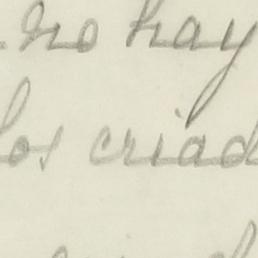 no hay
los criad